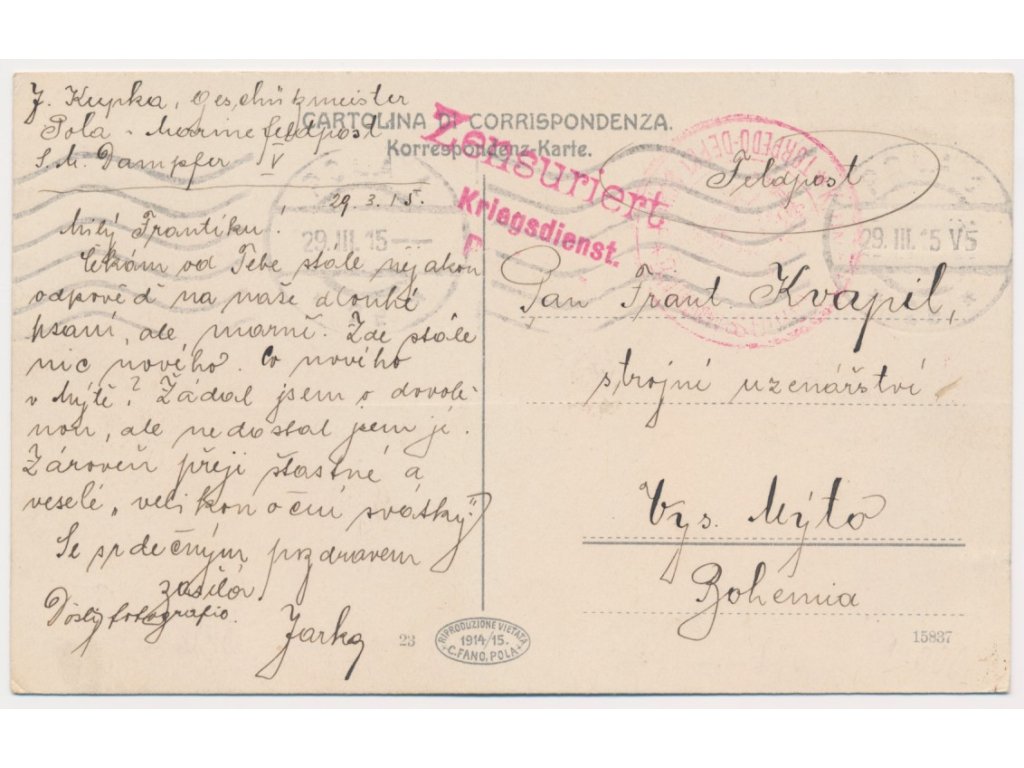 J. Kupka, Geschützmeister
Pola - Marinefeldpost
S. M. Dampfer V
CARTOLINA DI CORRISPONDENZA.
Korrespondenz-Karte.
Zensuriert
Kriegsdienst.
F
29.3.15.
Milý Frantíku!
Čekám od Tebe stále nějakou
odpověď na naše dlouhé
psaní, ale marně. Zde stále
nic nového. Co nového
v Mýtě? Žádal jsem o dovole-
nou, ale nedostal jsem ji.
Zároveň přeji šťastné a
veselé „velikonoční svátky"
Se srdečným pozdravem
Došly fotografie.
Jarka
Feldpost
29. III. 15
29. III. 15 V5
Pan Frant. Kvapil,
strojní uzenářství
Vys. Mýto
Bohemia
23
RIPRODUZIONE VIETATA
1914/15.
C. FANO, POLA
15837